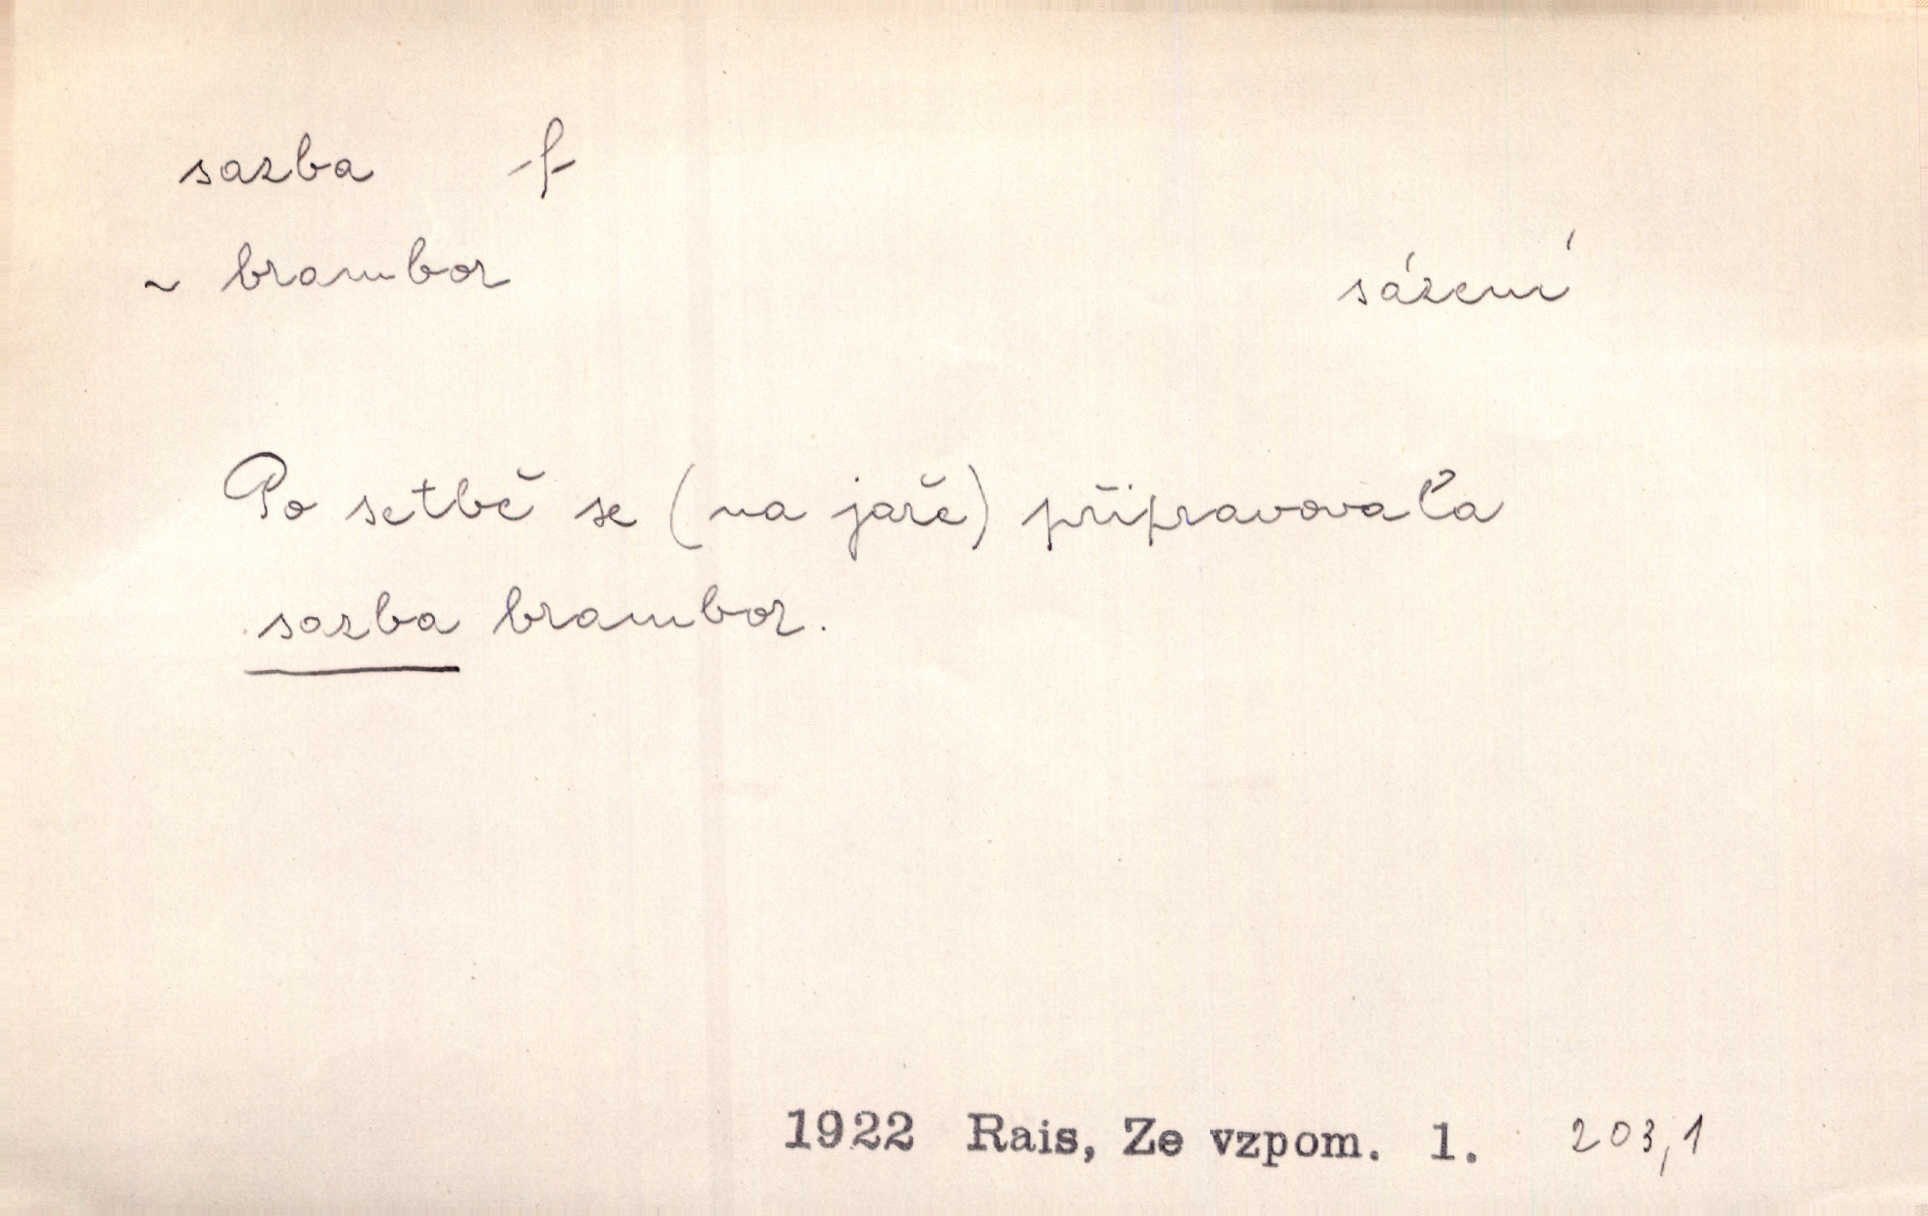 sazba f
~ brambor
sázení
Po setbě se (na jaře) připravovala
sazba brambor.
1922 Rais, Ze vzpom. 1. 203,1